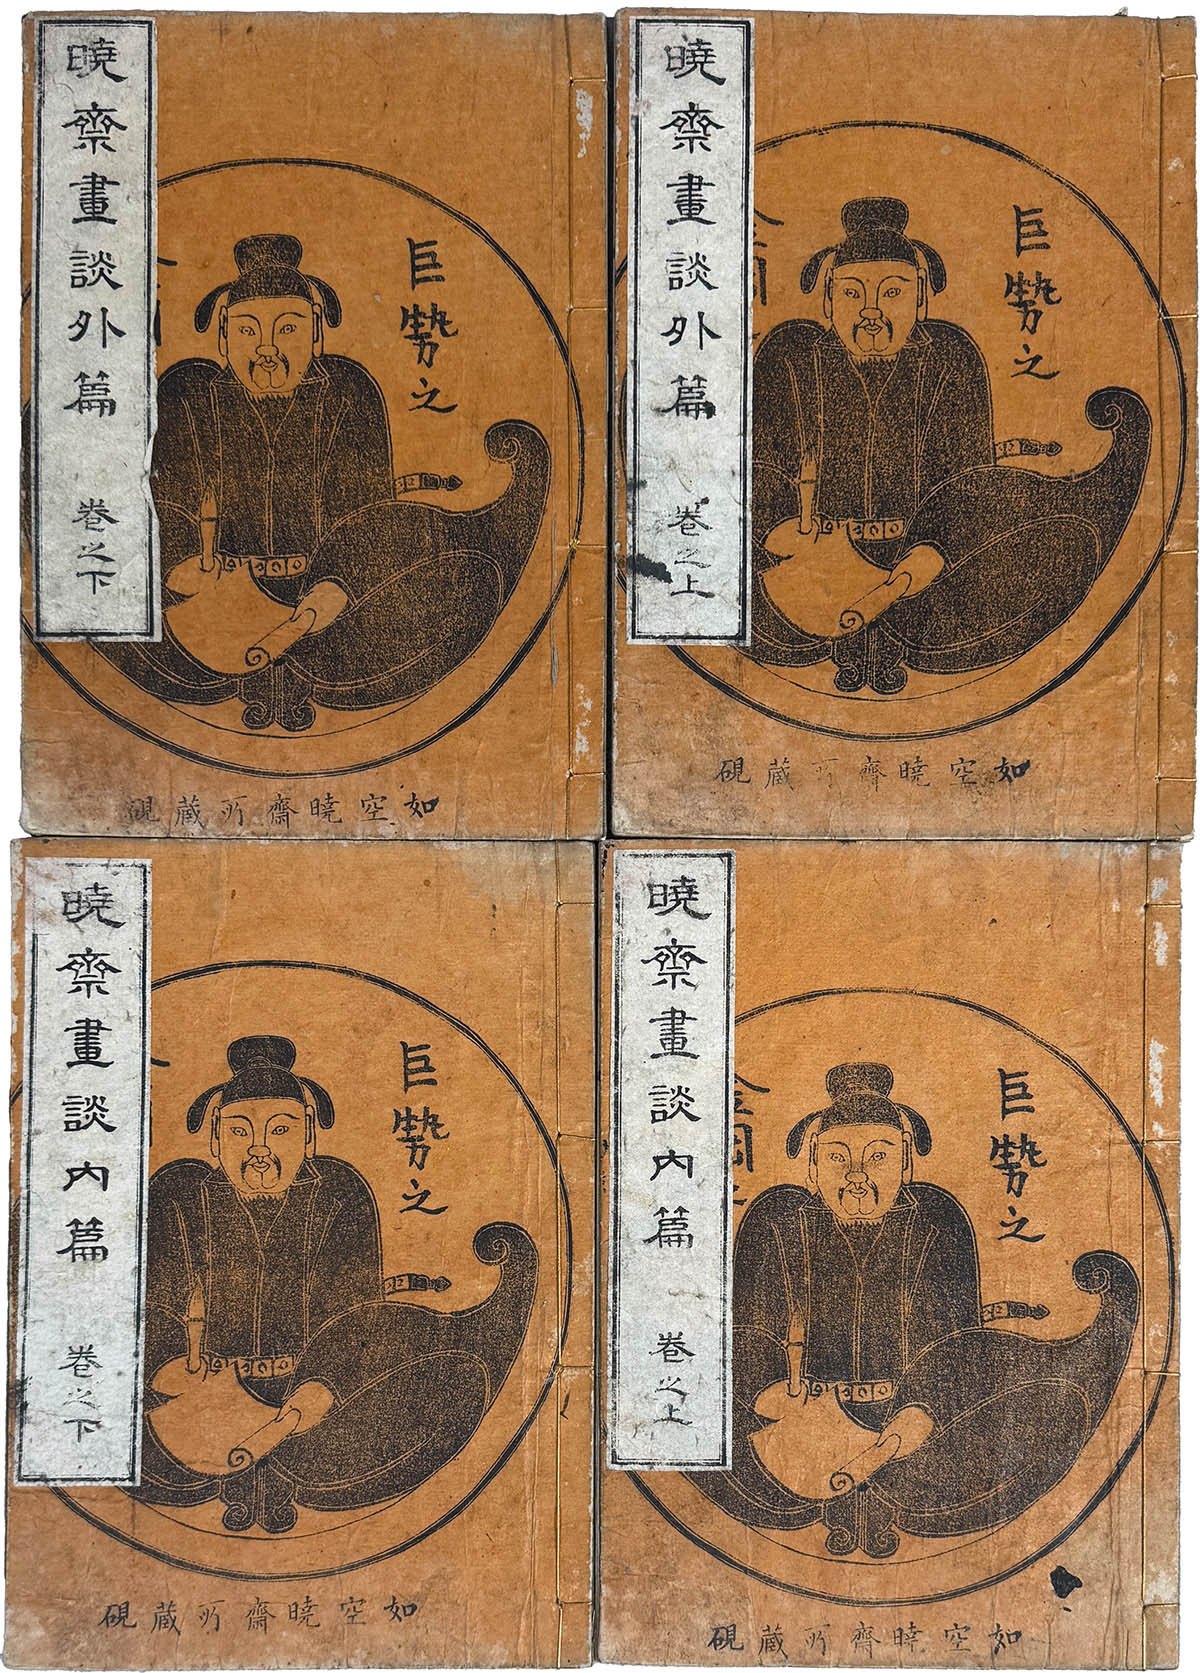 巨勢之
曉齋畫談外篇 巻之上
如空曉齋所蔵硯
巨勢之
曉齋畫談外篇 巻之下
如空曉齋所蔵硯
巨勢之
曉齋畫談内篇 巻之上
如空曉齋所蔵硯
巨勢之
曉齋畫談内篇 巻之下
如空曉齋所蔵硯